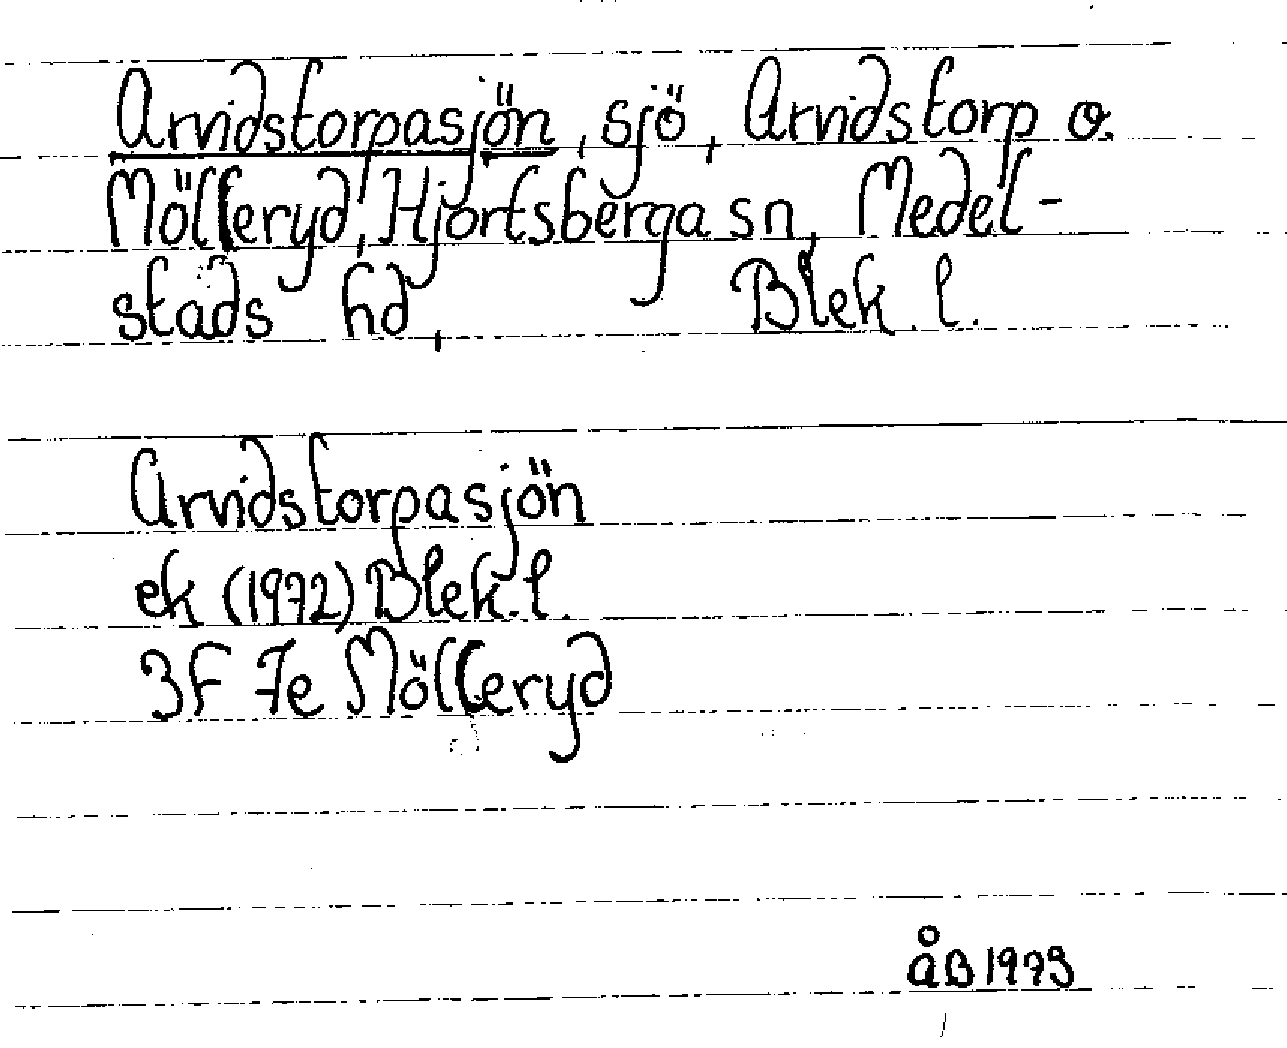 Arvidstorpasjön, sjö, Arvidstorp o.
Mölleryd, Hjortsberga sn, Medel-
stads hd, Blek. l.
Arvidstorpasjön
ek (1972) Blek. l.
3F 7e Mölleryd
åB 1979